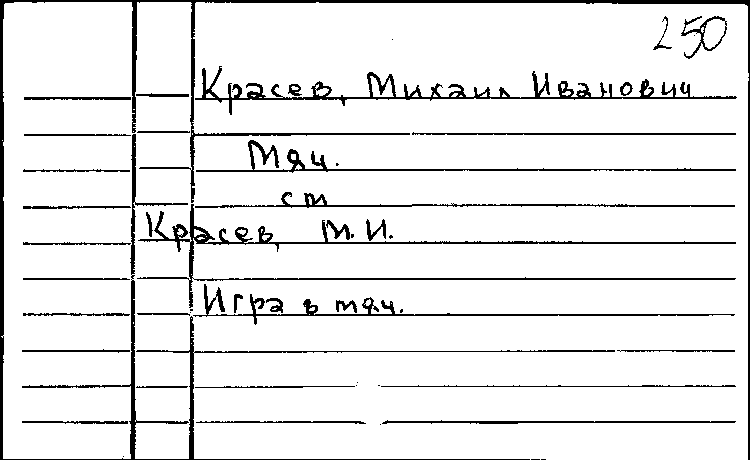 250
Красев, Михаил Иванович
Мяч.
см
Красев, М. И.
Игра в мяч.